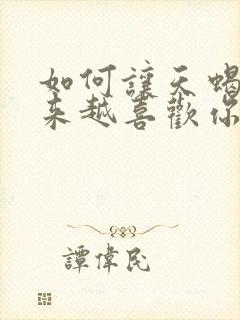 如何讓天蝎
來越喜歡你
譚偉民